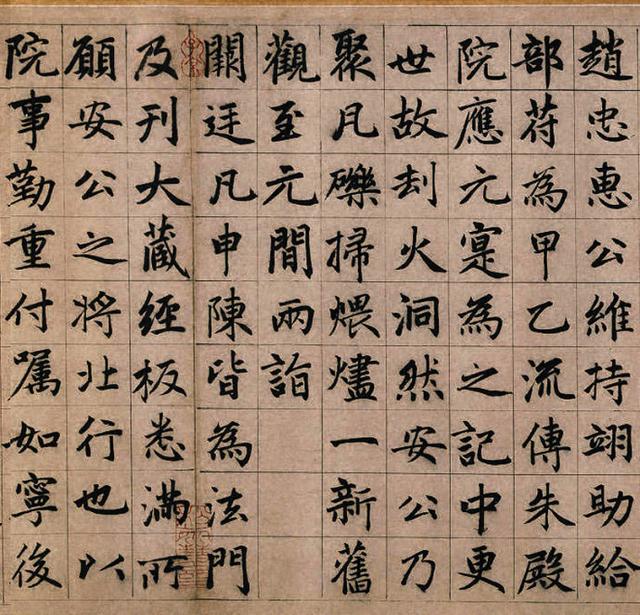 趙忠惠公維持翊助給
部苻為甲乙流傳朱殿
院應元寔為之記中更
世故刦火洞然安公乃
聚瓦礫掃煨燼一新舊
觀至元間兩詣
闕廷凡申陳皆為法門
及刊大藏經板悉滿所
願安公之將北行也以
院事勤重付囑如寧後